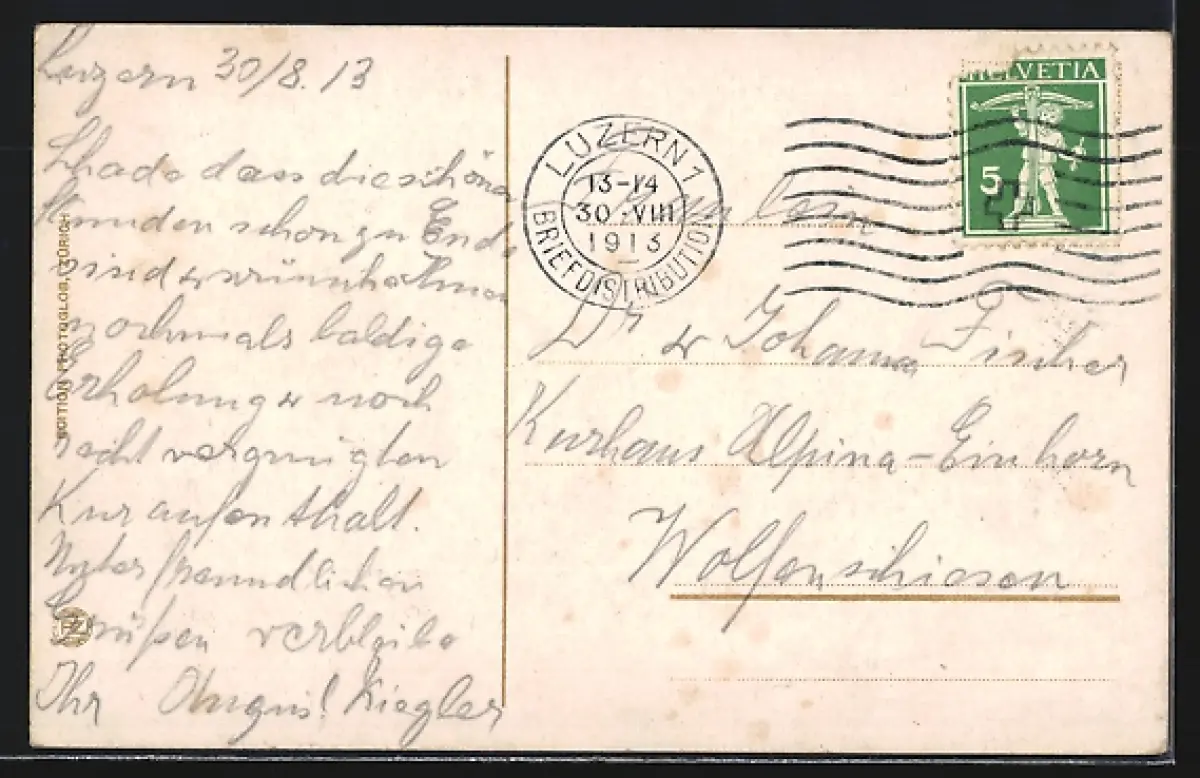 Luzern 30/8.13
Schade dass die schönen
Stunden schon zu Ende
sind & wünsche Ihnen
nochmals baldige
Erholung & noch
recht vergnügten
Kuraufenthalt.
Unter freundlichen
Grüßen verbleibe
Ihr August Kiegler
EDITION PHOTOGLOB, ZÜRICH
PZ
LUZERN 1
13-14
30·VIII
1913
BRIEFDISTRIBUTION
HELVETIA
5
Fräulein
Dr & Johanna Fischer
Kurhaus Alpina-Einhorn
Wolfenschiesen